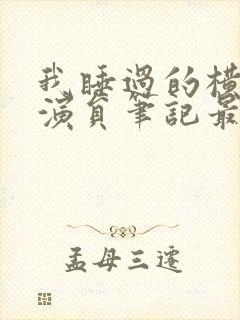 我睡過的橫
演員筆記最
孟母三遷